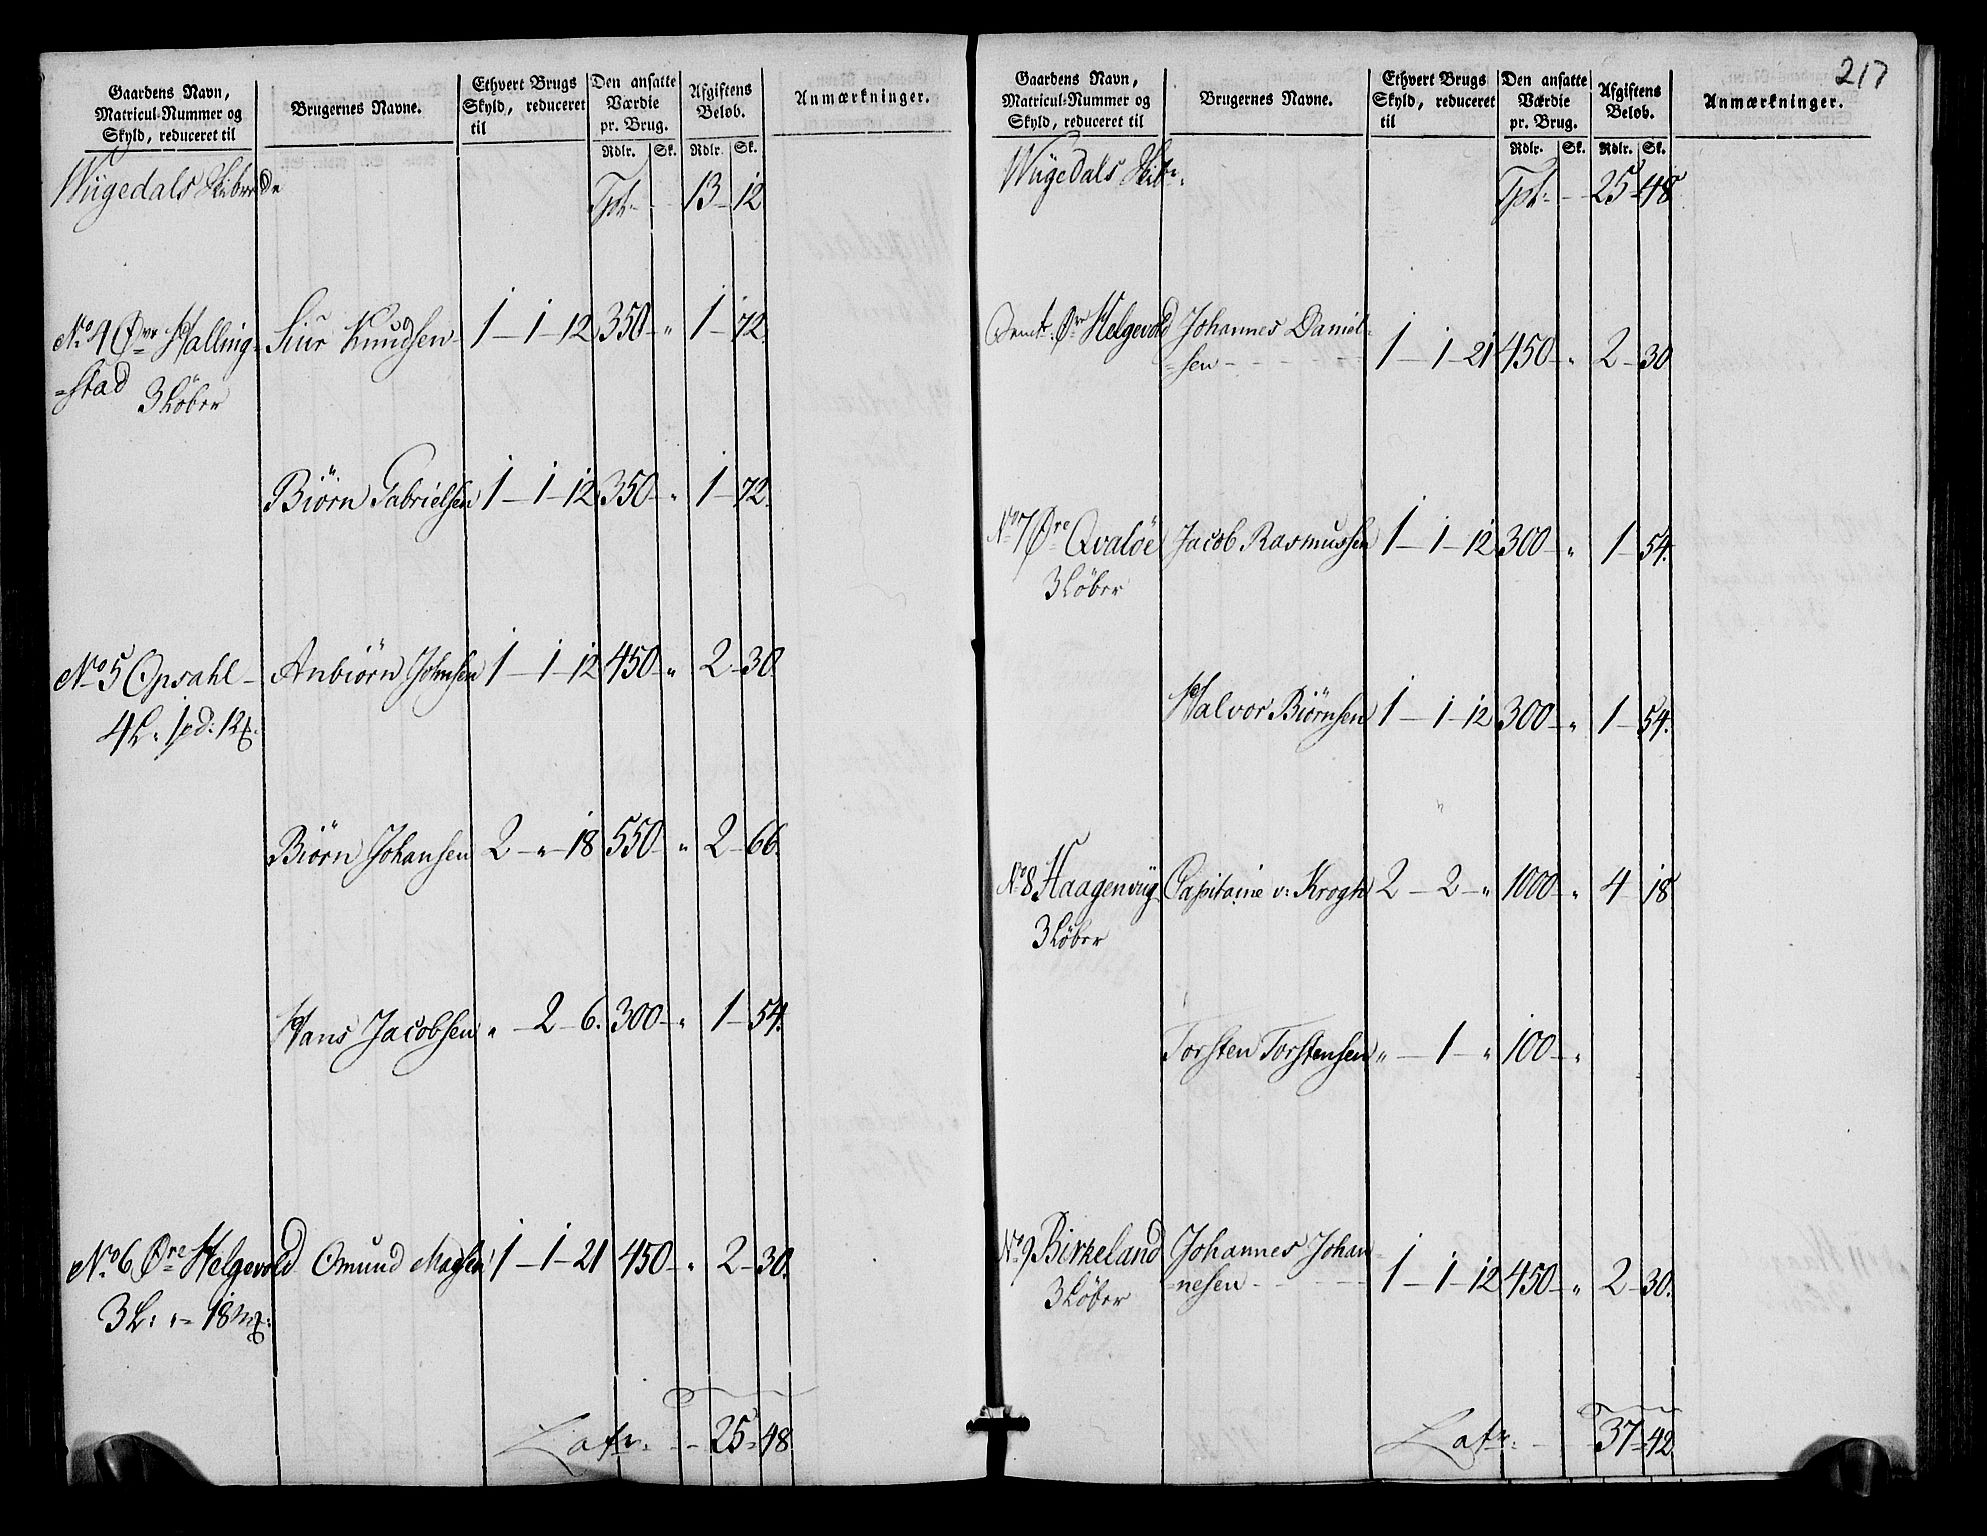 Gaardens Navn,
Matricul-Nummer og
Skyld, reduceret til
Brugernes Navne.
Ethvert Brugs
Skyld, reduceret
til
Den ansatte
Værdie
pr. Brug.
Rdlr. Sk.
Afgiftens
Beløb.
Rdlr. Sk.
Anmærkninger.
Wiigedals Skibrede
Tpt: - - 13 - 12
No 4 Øvr Halling= Siur Knudsen - 1 - 1 - 12 350 - " 1 - 72.
=stad
3 Løber
Biörn Gabrielsen 1 - 1 - 12 350 - " 1 - 72.
No 5 Opsahl - Anbiörn Johnsen 1 - 1 - 12 450 - " 2 - 30
4 L. 1 pd: 12
Biörn Johansen 2 - " - 18 550 - " 2 - 66.
Hans Jacobsen " - 2 - 6. 300 - " 1 - 54.
No 6 Øre Helgevold Omund 1 - 1 - 21 450 - " 2 - 30.
3 L: " = 18 mf:
Latr: - - 25 = 48
217
Gaardens Navn,
Matricul-Nummer og
Skyld, reduceret til
Brugernes Navne.
Ethvert Brugs
Skyld, reduceret
til
Den ansatte
Værdie
pr. Brug.
Rdlr. Sk.
Afgiftens
Beløb.
Rdlr. Sk.
Anmærkninger.
Wiigedals Skibr.
Tpt: - - 25 = 48
Øre Helgevold Johannes Daniel=
=sen - - - - 1 - 1 - 21 450 - " 2 - 30
No 7 Øre Qvalöe Jacob Rasmussen 1 - 1 - 12 300 - " 1 - 54.
3 Löber
Halvor Biörnsen 1 - 1 - 12 300 - " 1 - 54.
No 8 Haagenviig Capitaine v: Krogh 2 - 2 - " 1000 - " 4 - 18
3 Löber
Torsten Torstensen " - 1 - " 100 - "
No 9 Birkeland Johannes Johan=
3 Löber =nesen - - - - 1 - 1 - 12 450 - " 2 - 30.
Latr: - 37 = 42